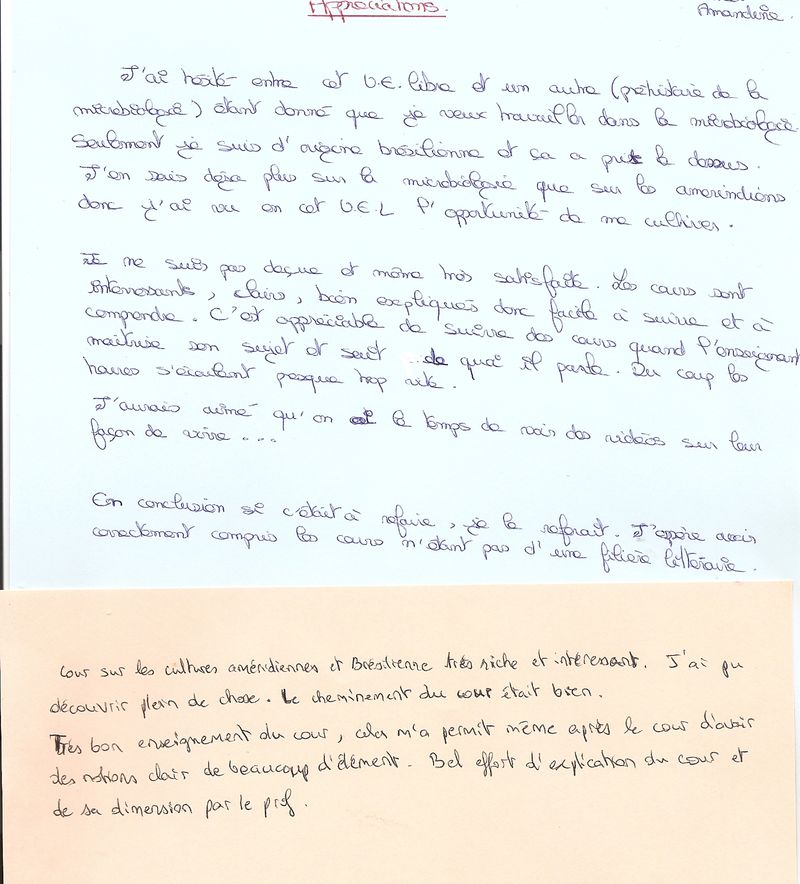 Appréciations.
Amandine.
J'ai hésité entre cet U.E. libre et un autre (préhistoire de la
microbiologie) étant donné que je veux travailler dans la microbiologie.
Seulement je suis d'origine brésilienne et ça a put le dessus.
J'en sais déja plus sur la microbiologie que sur les amerindiens
donc j'ai vu en cet U.E.L l'opportunité de me cultiver.
Je ne suis pas deçue et même très satisfaite. Les cours sont
interressants, clairs, bien expliqués donc facile à suivre et à
comprendre. C'est appréciable de suivre des cours quand l'enseignant
maitrise son sujet et sait de quoi il parle. Du coup les
heures s'écoulent presque trop vite.
J'aurais aimé qu'on ai le temps de voir des vidéos sur leur
façon de vivre...
En conclusion si c'était à refaire, je le referait. J'espère avoir
correctement compris les cours n'étant pas d'une filière littéraire.
Cour sur les cultures améridiennes et Brésilienne très riche et intéressant. J'ai pu
découvrir plein de chose. Le cheminement du cour était bien.
Très bon enseignement du cour, cela m'a permit même après le cour d'avoir
des notions clair de beaucoup d'élément. Bel effort d'explication du cour et
de sa dimension par le prof.